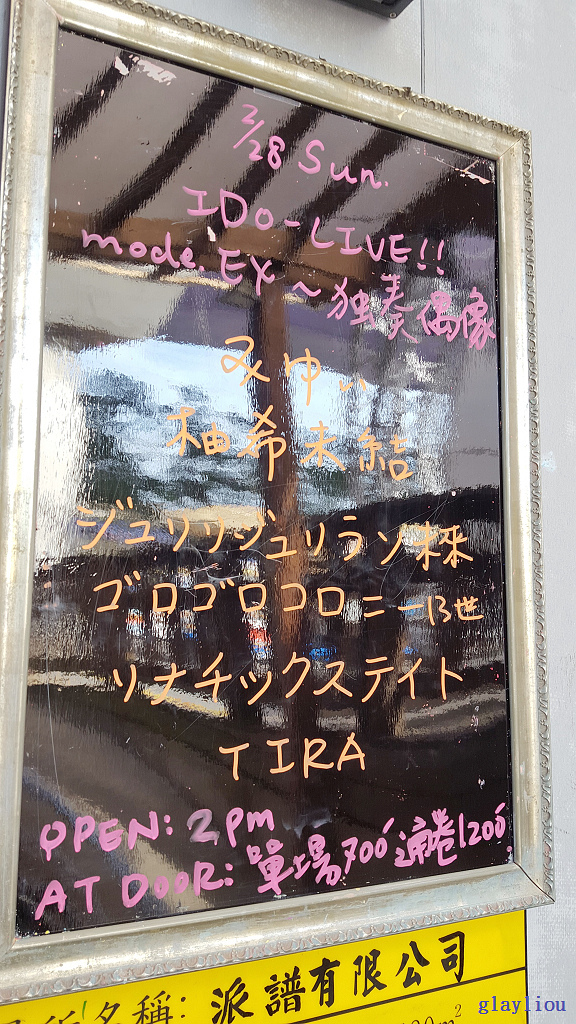 2/28 Sun.
IDo-LIVE!!
mode.EX～独奏偶像
みゆぃ
柚希未結
ジュリッジュリランソ株
ゴロゴロコロニー13世
リナチックステイト
TIRA
OPEN: 2pm
AT DooR: 單場700 通卷1200
名稱: 派譜有限公司
m²
glayliou